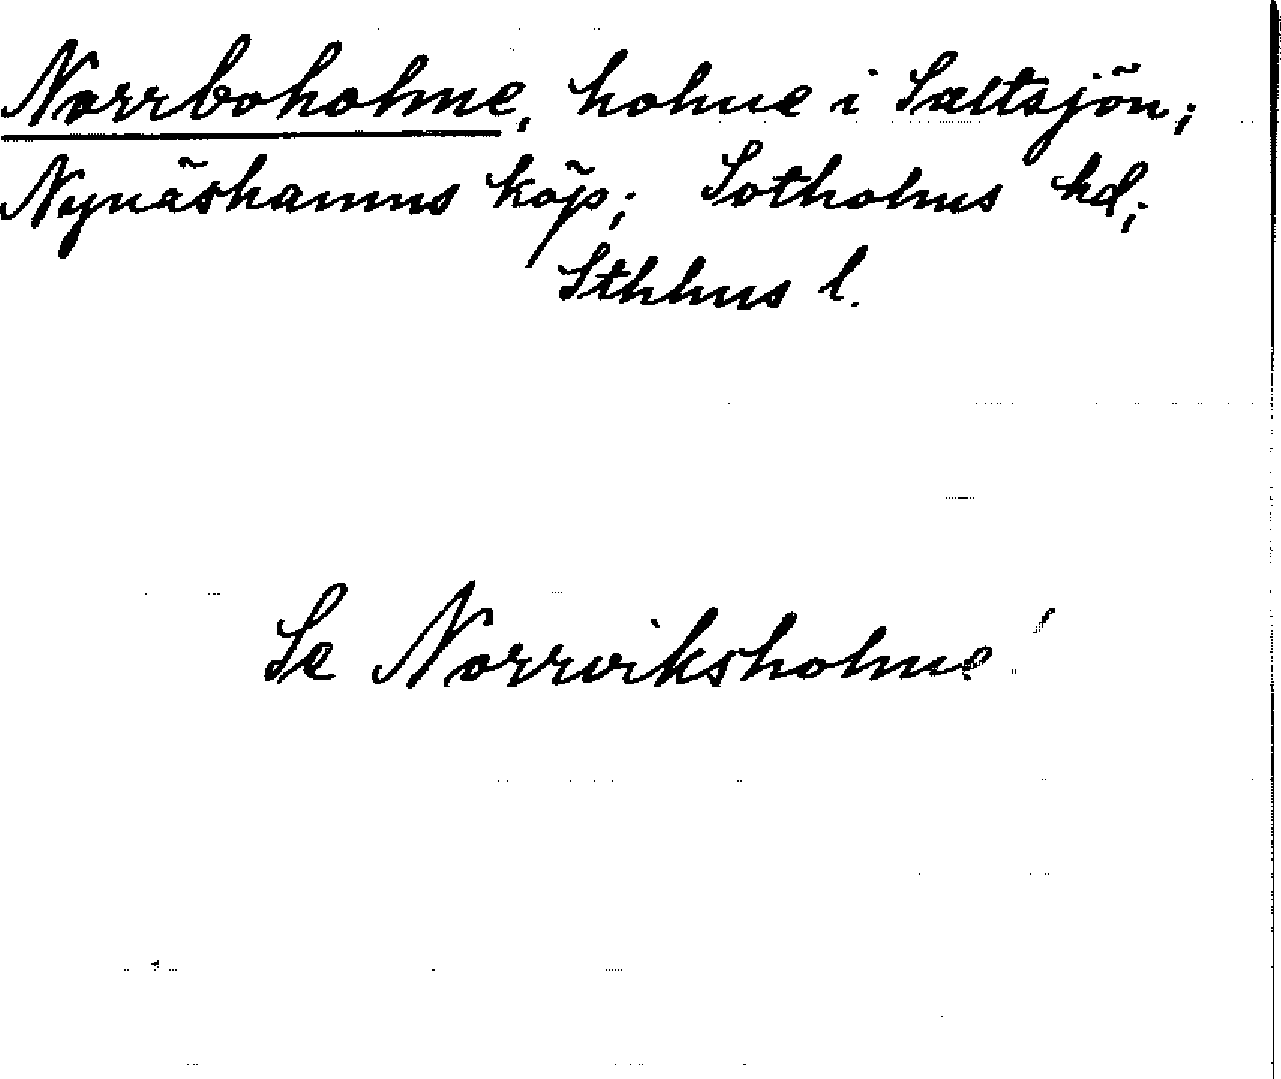 Norrboholme, holme i Saltsjön;
Nynäshamns köp; Sotholms hd;
Sthlms l.
Se Norrviksholme!